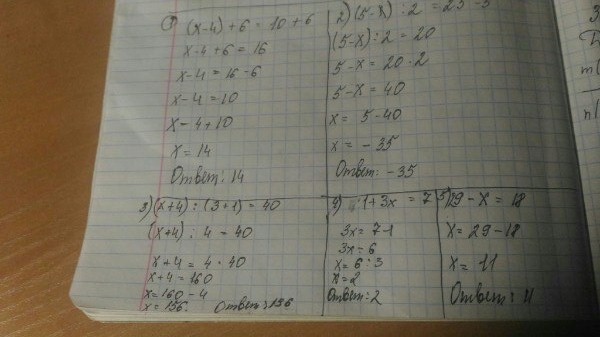 1) (x-4)+6 = 10+6
x-4+6 = 16
x-4 = 16-6
x-4 = 10
x-4+10
x = 14
Ответ: 14
2) (5-x) : 2 = 25-5
(5-x) : 2 = 20
5-x = 20·2
5-x = 40
x = 5-40
x = -35
Ответ: -35
3) (x+4) : (3+1) = 40
(x+4) : 4 = 40
x+4 = 4·40
x+4 = 160
x = 160-4
x = 156.
Ответ: 156
4) 1+3x = 7
3x = 7-1
3x = 6
x = 6:3
x = 2
Ответ: 2
5) 29-x = 18
x = 29-18
x = 11
Ответ: 11